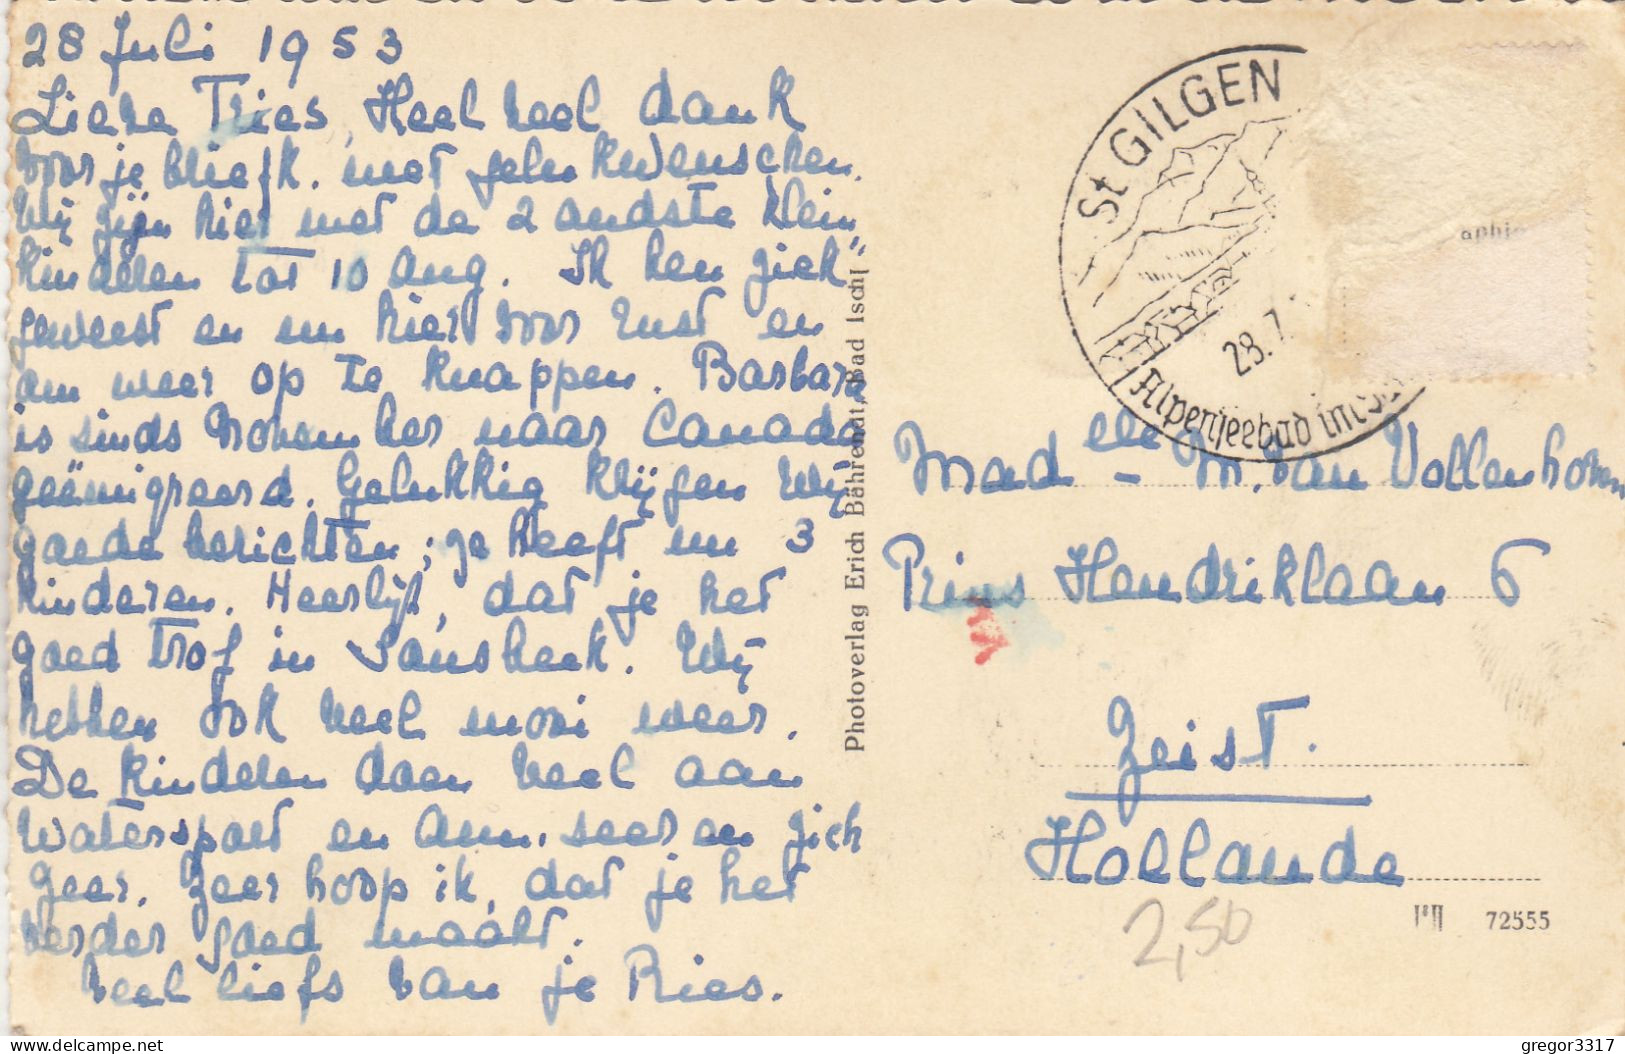 28 Juli 1953
Lieve Tries, Heel veel dank
voor je briefk. met gelukwenschen.
Wij zijn hier met de 2 oudste klein
kinderen tot 10 Aug. Ik ben ziek
geweest en nu hier voor rust en
om weer op te knappen. Barbara
is sinds November naar Canada
geëmigreerd. Gelukkig krijgen wij
goede berichten; ze heeft nu 3
kinderen. Heerlijk, dat je het
goed trof in Sonsbeek. Wij
hebben ook veel mooi weer.
De kinderen doen veel aan
watersport en
geer. Zeer hoop ik, dat je het
verder goed maakt.
Veel liefs van je Ries.
Photoverlag Erich Bährendt, Bad Ischl
St GILGEN
28.7.
Alpenseebad im
aphie
Mad elle - M. van Vollenhoven
Prins Hendriklaan 6
Zeist.
Hollande
2,50
72555
gregor3317